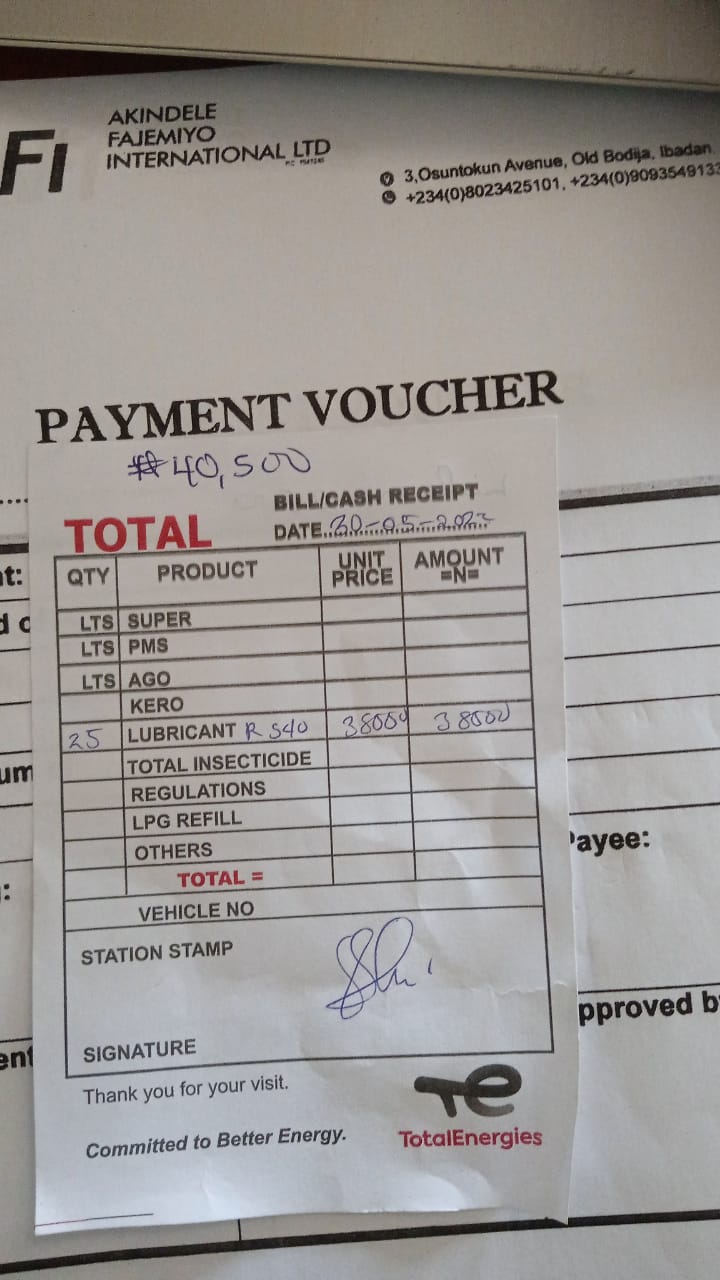 FI
AKINDELE
FAJEMIYO
INTERNATIONAL LTD
3,Osuntokun Avenue, Old Bodija, Ibadan
+234(0)8023425101, +234(0)9093549133
PAYMENT VOUCHER
₦40,500
BILL/CASH RECEIPT
TOTAL
DATE 30-05-2023
QTY PRODUCT UNIT PRICE AMOUNT =N=
LTS SUPER
LTS PMS
LTS AGO
KERO
25 LUBRICANT R S40 38000 38000
TOTAL INSECTICIDE
REGULATIONS
LPG REFILL
OTHERS
TOTAL =
VEHICLE NO
STATION STAMP
SIGNATURE
Thank you for your visit.
Committed to Better Energy.
TotalEnergies
Payee:
pproved b